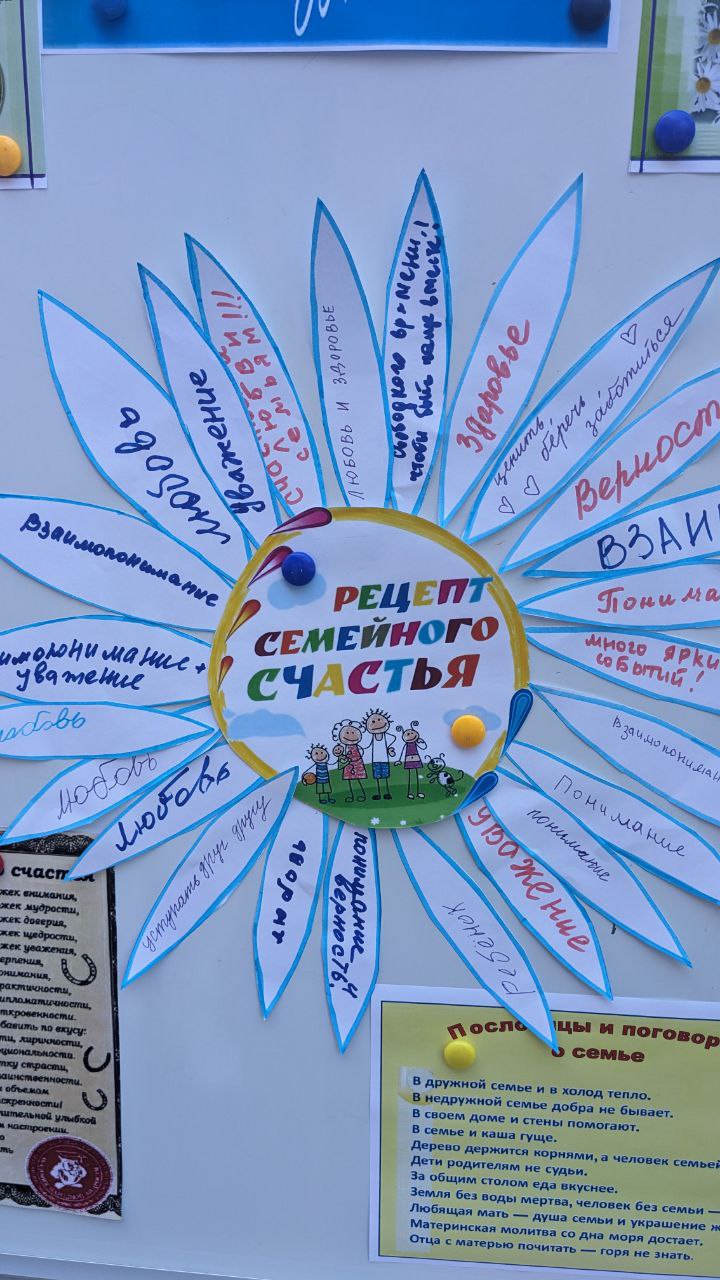 РЕЦЕПТ
СЕМЕЙНОГО
СЧАСТЬЯ
Любовь
уважение
счастье
любви
семьям!!!
любовь и здоровье
свободного времени,
чтобы быть чаще вместе!
Здоровье
ценить, беречь
заботиться
Верност
ВЗАИ
Понима
много ярки
событий!
Взаимопониман
Понимание
понимание
уважение
ребёнок
понимание и
верность!
любовь
уступать друг другу
Любовь
любовь
любовь
имопонимание +
уважение
Взаимопонимание
счастья
жек внимания,
жек мудрости,
жек доверия,
жек щедрости,
жек уважения,
ерпения,
онимания,
рактичности,
ипломатичности,
ткровенности.
бавить по вкусу:
ти, лиричности,
циональности.
тку страсти,
аинственности.
м объемом
скренности!
ительной улыбкой
м настроении.
Пословицы и поговор
о семье
В дружной семье и в холод тепло.
В недружной семье добра не бывает.
В своем доме и стены помогают.
В семье и каша гуще.
Дерево держится корнями, а человек семьей
Дети родителям не судьи.
За общим столом еда вкуснее.
Земля без воды мертва, человек без семьи —
Любящая мать — душа семьи и украшение ж
Материнская молитва со дна моря достает.
Отца с матерью почитать — горя не знать.